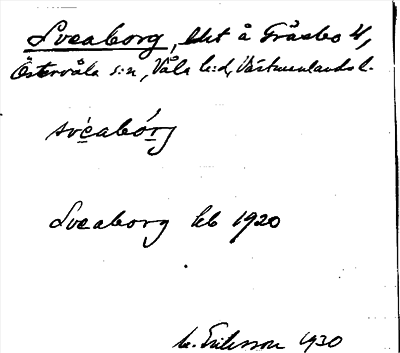 Sveaborg, lht å Gräsbo 4,
Östervåla s:n, Våla h:d, Västmanlands l.
svéabór̲j
Sveaborg kb 1920
M. Eriksson 1930